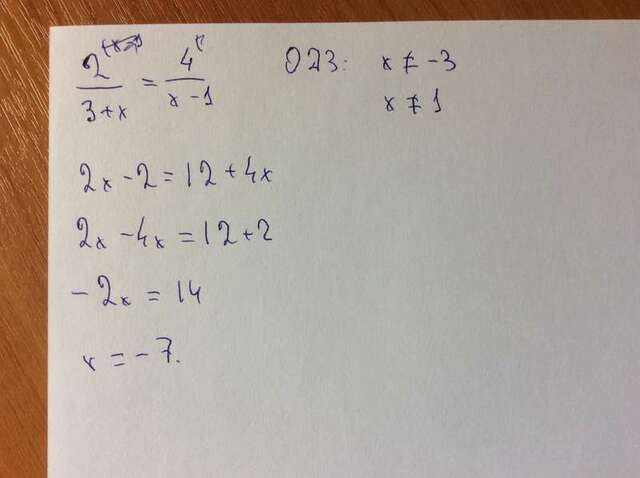 2/(3+x) = 4/(x-1) ОДЗ: x ≠ -3
x ≠ 1
2x - 2 = 12 + 4x
2x - 4x = 12 + 2
- 2x = 14
x = -7.